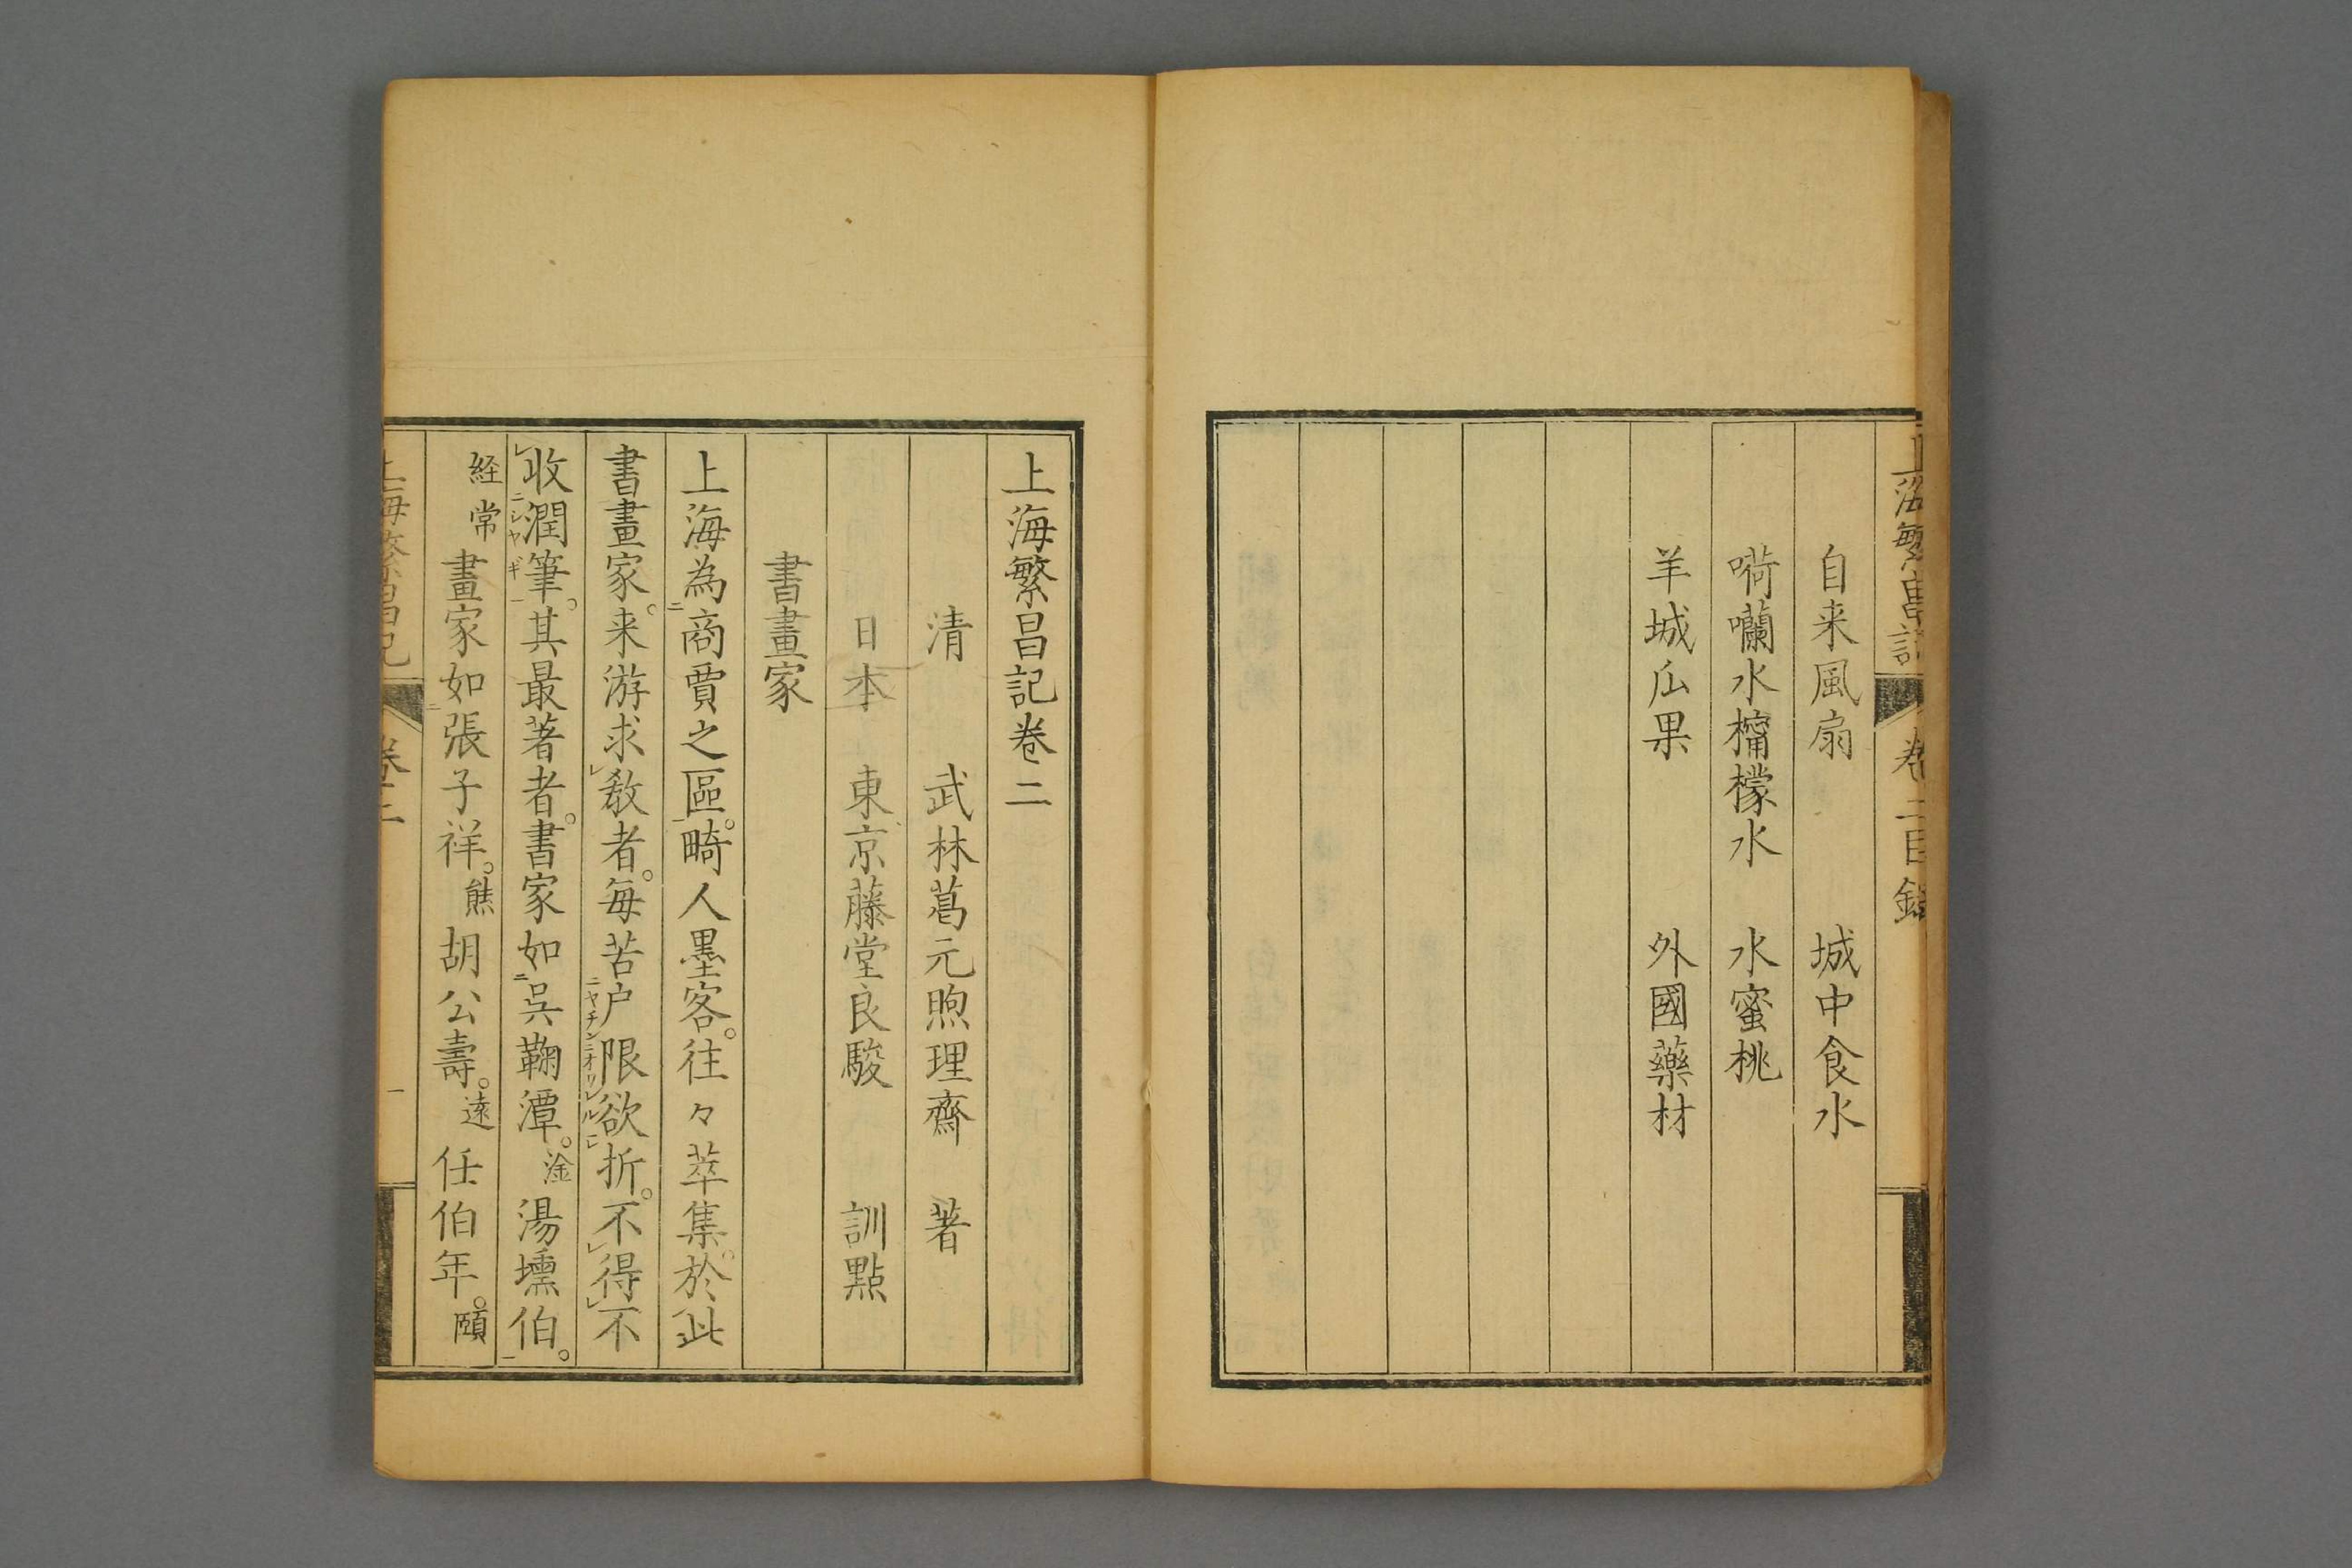 上海繁昌記 卷二目錄
自来風扇 城中食水
嗬囒水檸檬水 水蜜桃
羊城瓜果 外國藥材
上海繁昌記卷二
清 武林葛元煦理齋 著
日本 東京藤堂良駿 訓點
書畫家
上海為ニ商賈之區一。畸人墨客。往々萃集。於此
書畫家。来游求レ教者。毎苦ニ户限欲折ヤチンニオリレルニ。不レ得レ不
レ收ニ潤筆シャギ一。其最著者。書家如ニ呉鞠潭。淦湯壎伯一。
経常 畫家如ニ張子祥。熊胡公壽。遠任伯年。頤
上海繁昌記 卷二 一